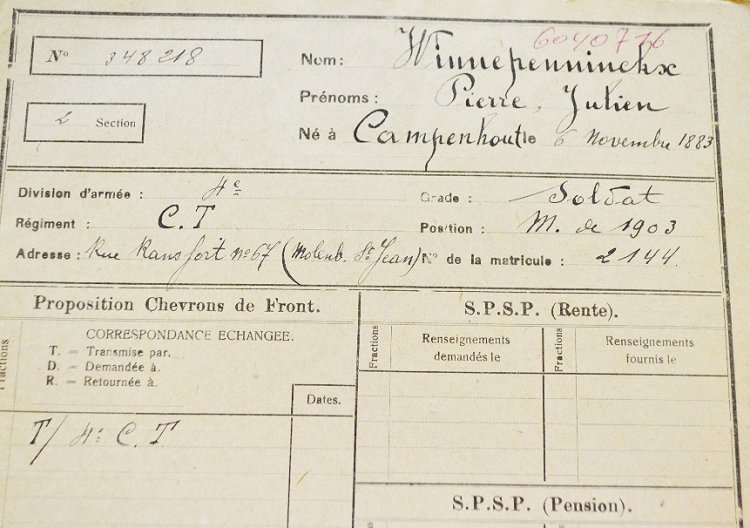 6040716
Nº 348218
Nom: Winnepenninckx
Prénoms: Pierre, Julien
2 Section
Né à Campenhout le 6 Novembre 1883
Division d'armée : 4e
Grade: Soldat
Régiment : C.T
Position : M. de 1903
Adresse : Rue Ransfort nº 67 (Molenb. St Jean) N° de la matricule : 2144.
Proposition Chevrons de Front.
S.P.S.P. (Rente).
Fractions
CORRESPONDANCE ECHANGEE.
T. = Transmise par.
D. = Demandée à.
R. = Retournée à.
Dates.
Fractions
Renseignements
demandés le
Fractions
Renseignements
fournis le
T/ 4e C.T.
S.P.S.P. (Pension).